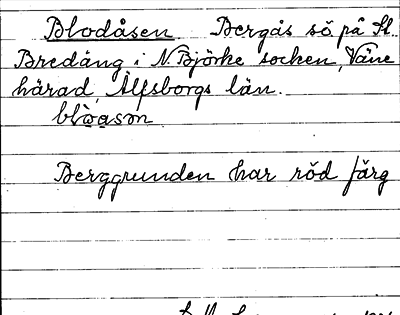 Blodåsen Bergås sö på St.
Bredäng i N. Björke socken, Väne
härad, Älfsborgs län.
blòa̱son
Berggrunden har röd färg